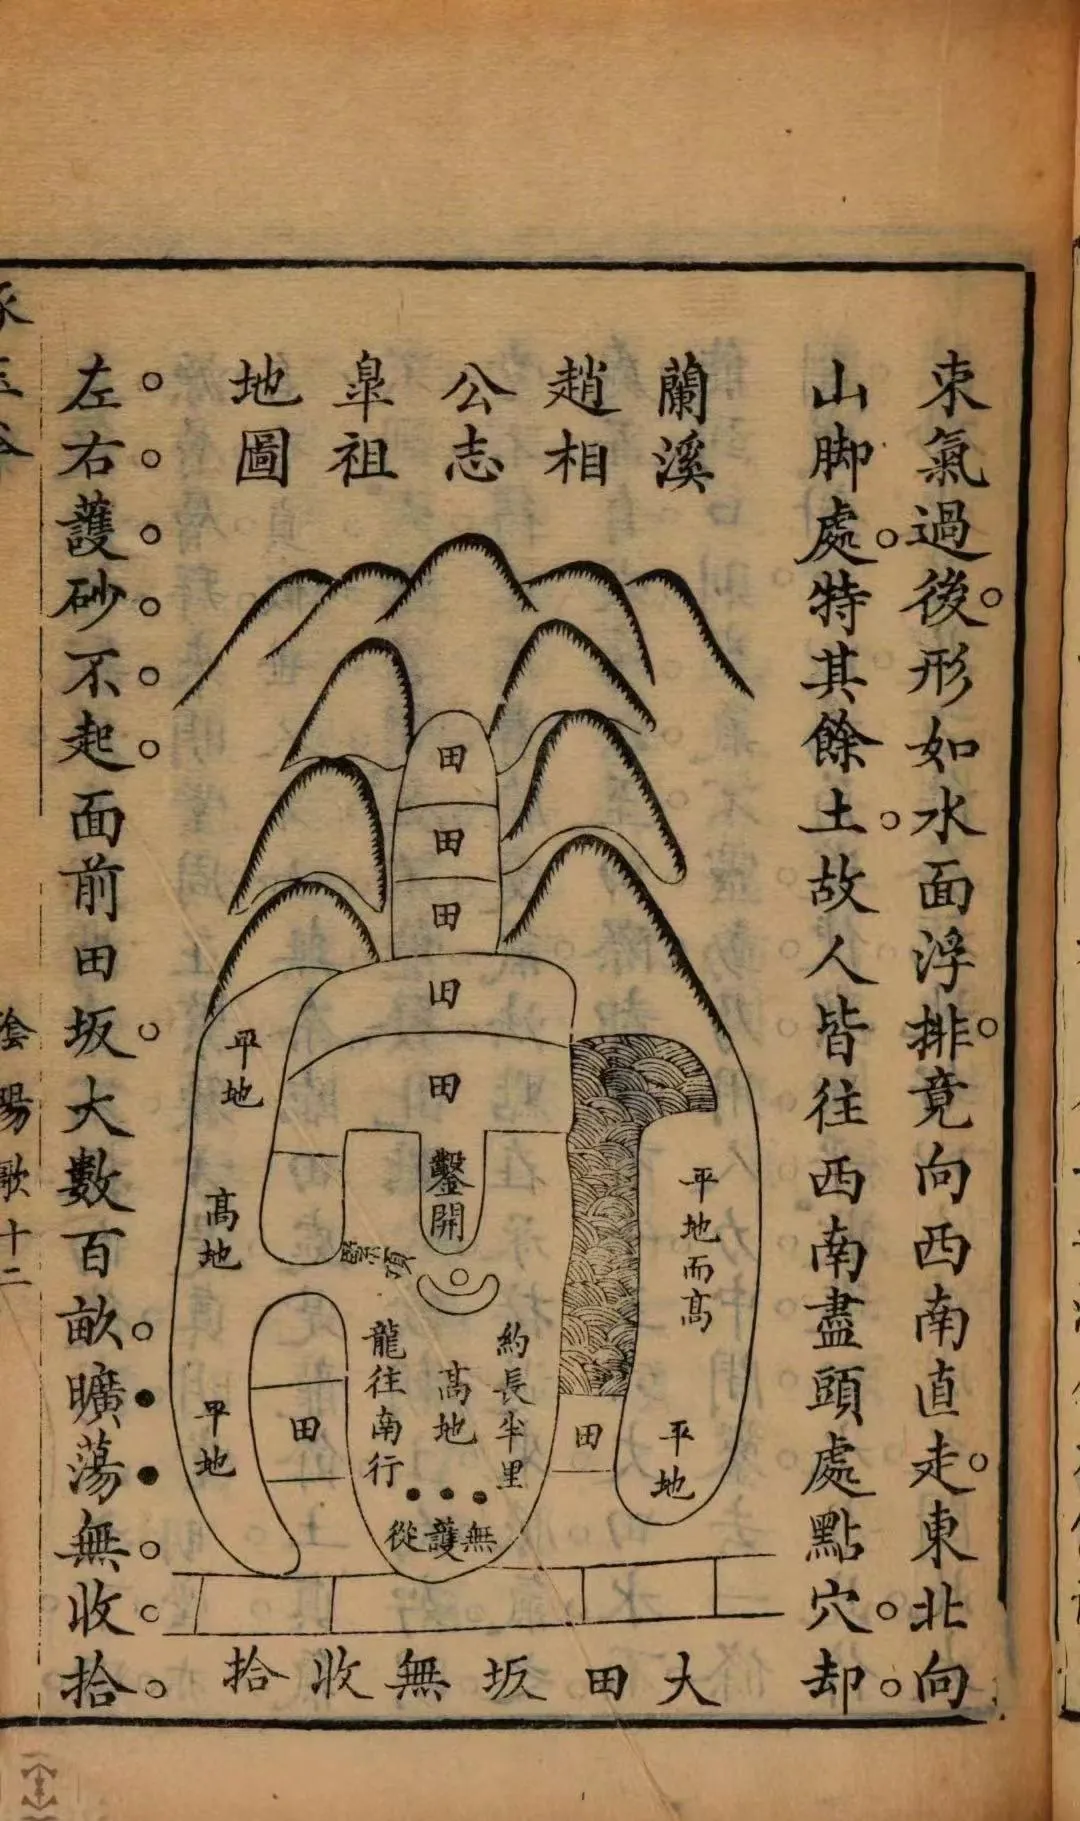 束氣過後形如水面浮排竟向西南直走東北向
山脚處特其餘土故人皆往西南盡頭處點穴却
蘭溪
趙相
公志
臯祖
地圖
田
田
田
田
田
鑿開
平地
高地
平地
田
龍往南行
高地
約長半里
無護從
平地而高
平地
田
大田坂無收拾
左右護砂不起面前田坂大數百畝曠蕩無收拾
陰陽歌十二